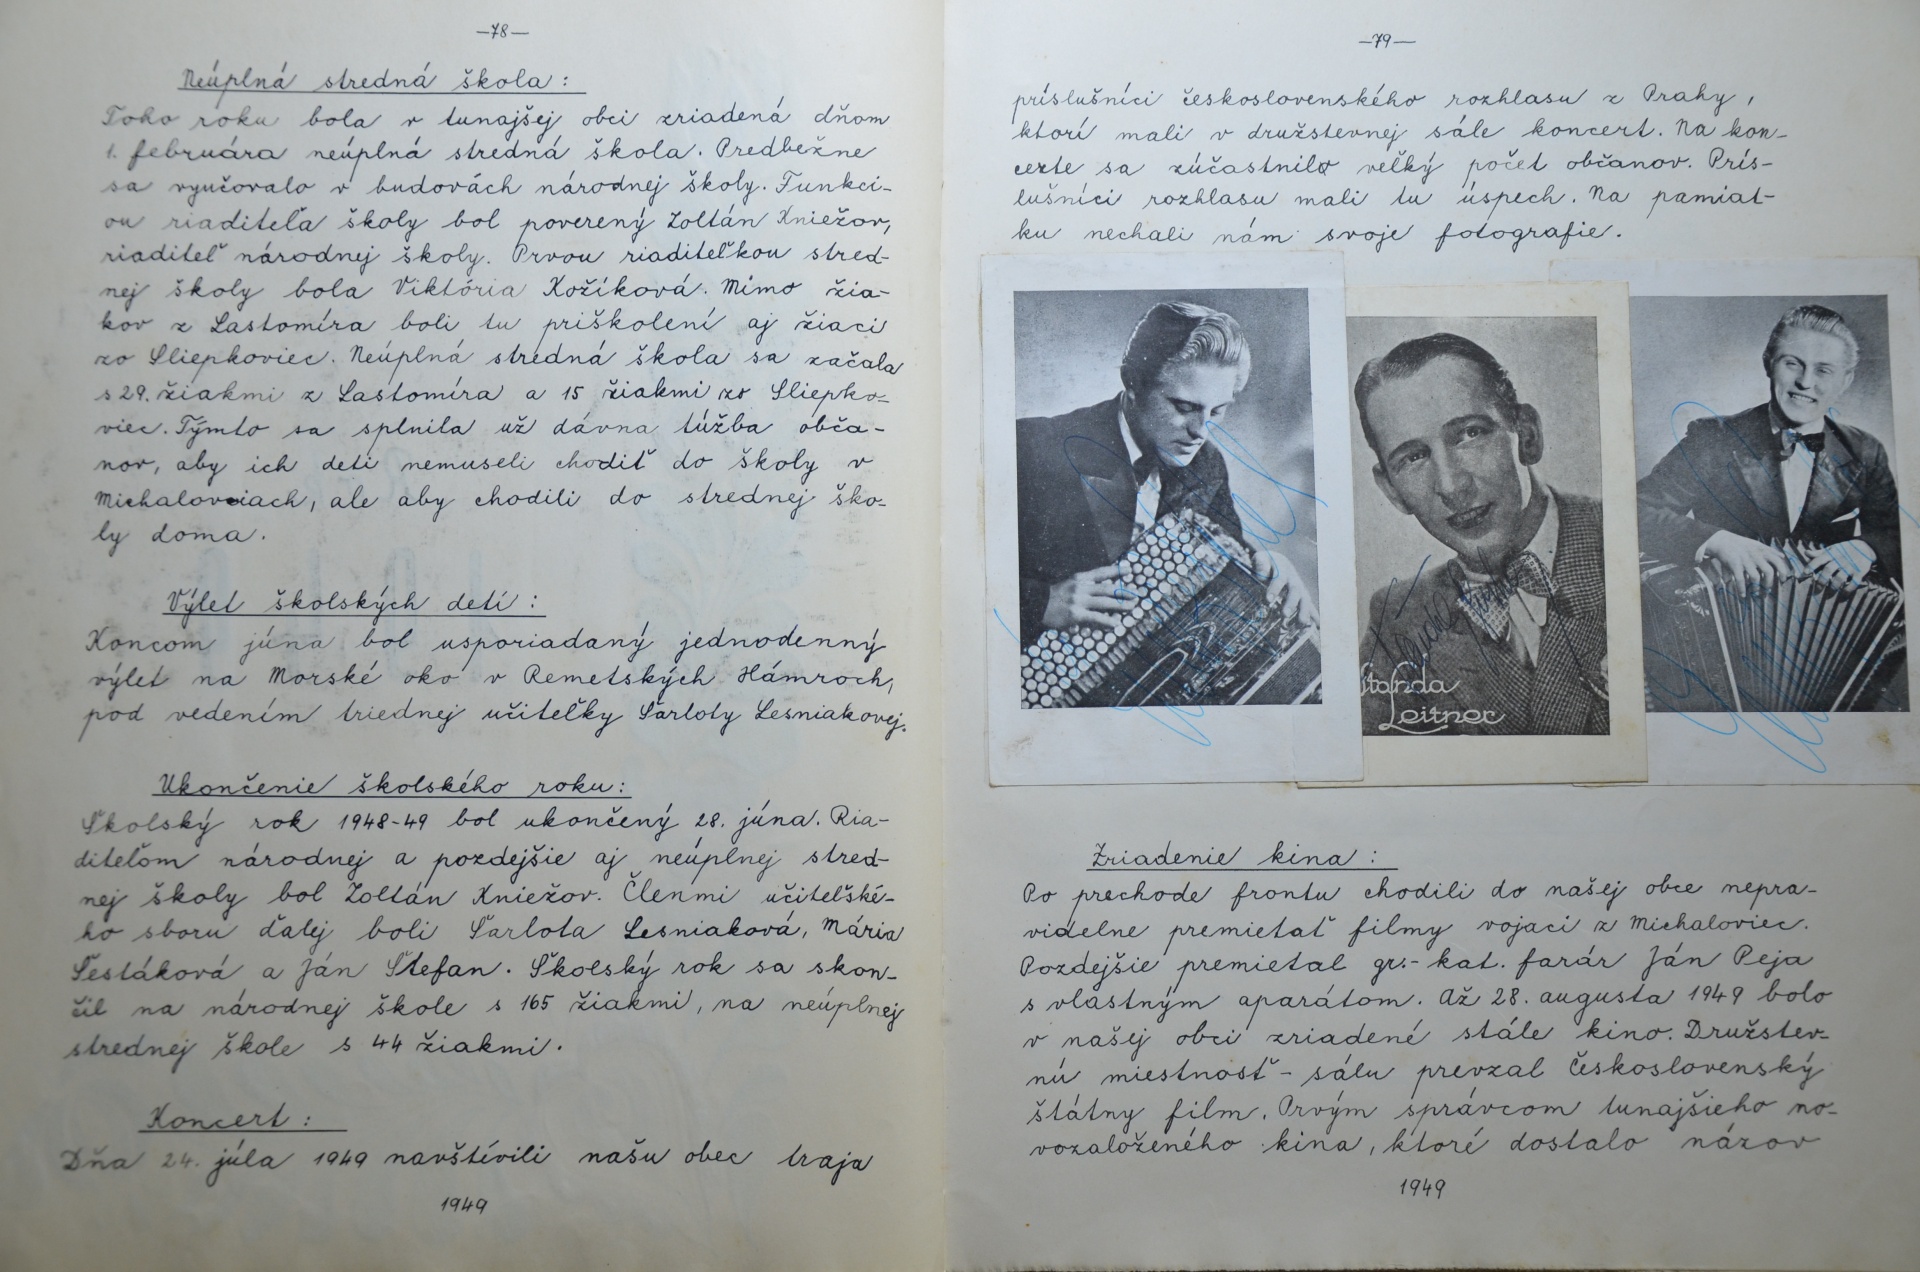 —78—
Neúplná stredná škola:
Toho roku bola v tunajšej obci zriadená dňom
1. februára neúplná stredná škola. Predbežne
sa vyučovalo v budovách národnej školy. Funkci-
ou riaditeľa školy bol poverený Zoltán Kniežov,
riaditeľ národnej školy. Prvou riaditeľkou stred-
nej školy bola Viktória Kožíková. Mimo žia-
kov z Lastomíra boli tu priškolení aj žiaci
zo Sliepkoviec. Neúplná stredná škola sa začala
s 29. žiakmi z Lastomíra a 15 žiakmi zo Sliepko-
viec. Týmto sa splnila už dávna túžba obča-
nov, aby ich deti nemuseli chodiť do školy v
Michalovciach, ale aby chodili do strednej ško-
ly doma.
Výlet školských detí:
Koncom júna bol usporiadaný jednodenný
výlet na Morské oko v Remetských Hámroch,
pod vedením triednej učiteľky Šarloty Lesniakovej.
Ukončenie školského roku:
Školský rok 1948-49 bol ukončený 28. júna. Ria-
diteľom národnej a pozdejšie aj neúplnej stred-
nej školy bol Zoltán Kniežov. Členmi učiteľské-
ho sboru ďalej boli Šarlota Lesniaková, Mária
Šestáková a Ján Štefan. Školský rok sa skon-
čil na národnej škole s 165 žiakmi, na neúplnej
strednej škole s 44 žiakmi.
Koncert:
Dňa 24. júla 1949 navštívili našu obec traja
1949
—79—
príslušníci československého rozhlasu z Prahy,
ktorí mali v družstevnej sále koncert. Na kon-
certe sa zúčastnilo veľký počet občanov. Prís-
lušníci rozhlasu mali tu úspech. Na pamiat-
ku nechali nám svoje fotografie.
Standa
Leitner
Zriadenie kina:
Po prechode frontu chodili do našej obce nepra-
videlne premietať filmy vojaci z Michaloviec.
Pozdejšie premietal gr.-kat. farár Ján Peja
s vlastným aparátom. Až 28. augusta 1949 bolo
v našej obci zriadené stále kino. Družstev-
nú miestnosť - sálu prevzal Československý
štátny film. Prvým správcom tunajšieho no-
vozaloženého kina, ktoré dostalo názov
1949